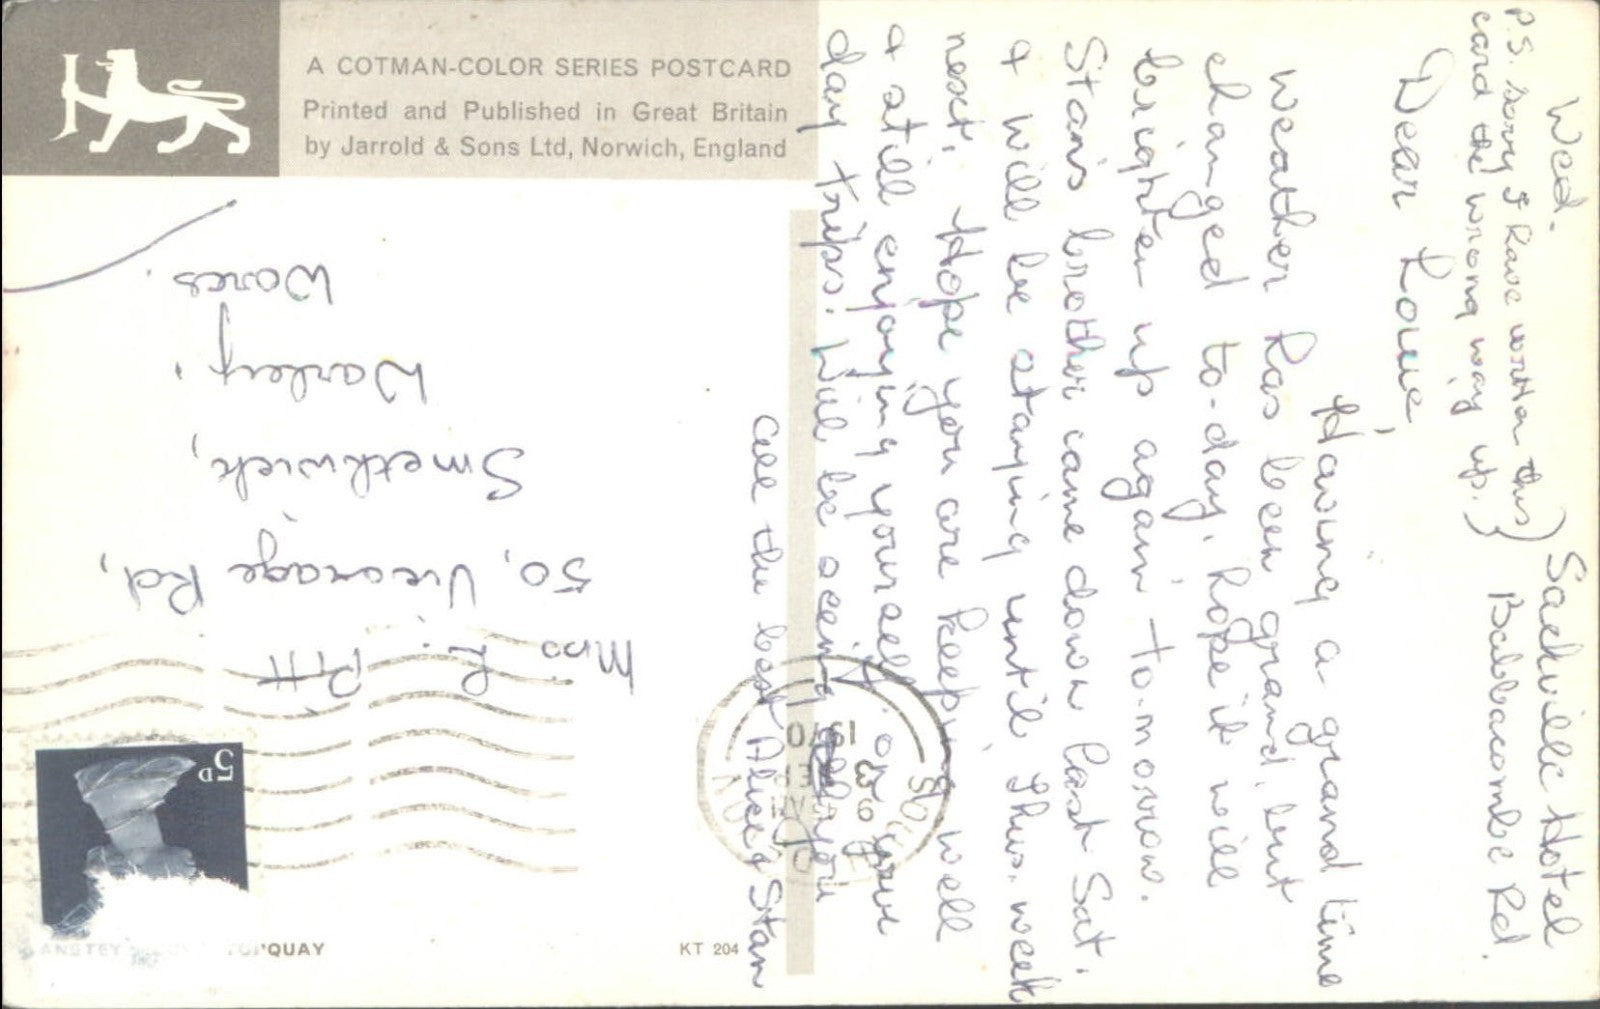 A COTMAN-COLOR SERIES POSTCARD
Printed and Published in Great Britain
by Jarrold & Sons Ltd, Norwich, England
Wed.
Sackville Hotel
Babbacombe Rd.
P.S. Sorry I have written this
card the wrong way up.)
Dear Louie,
Having a grand time
weather has been grand, but
changed to-day, hope it will
brighten up again to-morrow.
Stan's brother came down last Sat.
& will be staying until Thus. week
next. Hope you are keeping well
& still enjoying yourself on your
day trips. Will be seeing you
All the best Alice & Stan
Miss L. Pitt
50, Vicarage Rd,
Smethwick,
Warley,
Worcs.
5D
1970
ANSTEY TORQUAY
KT 204